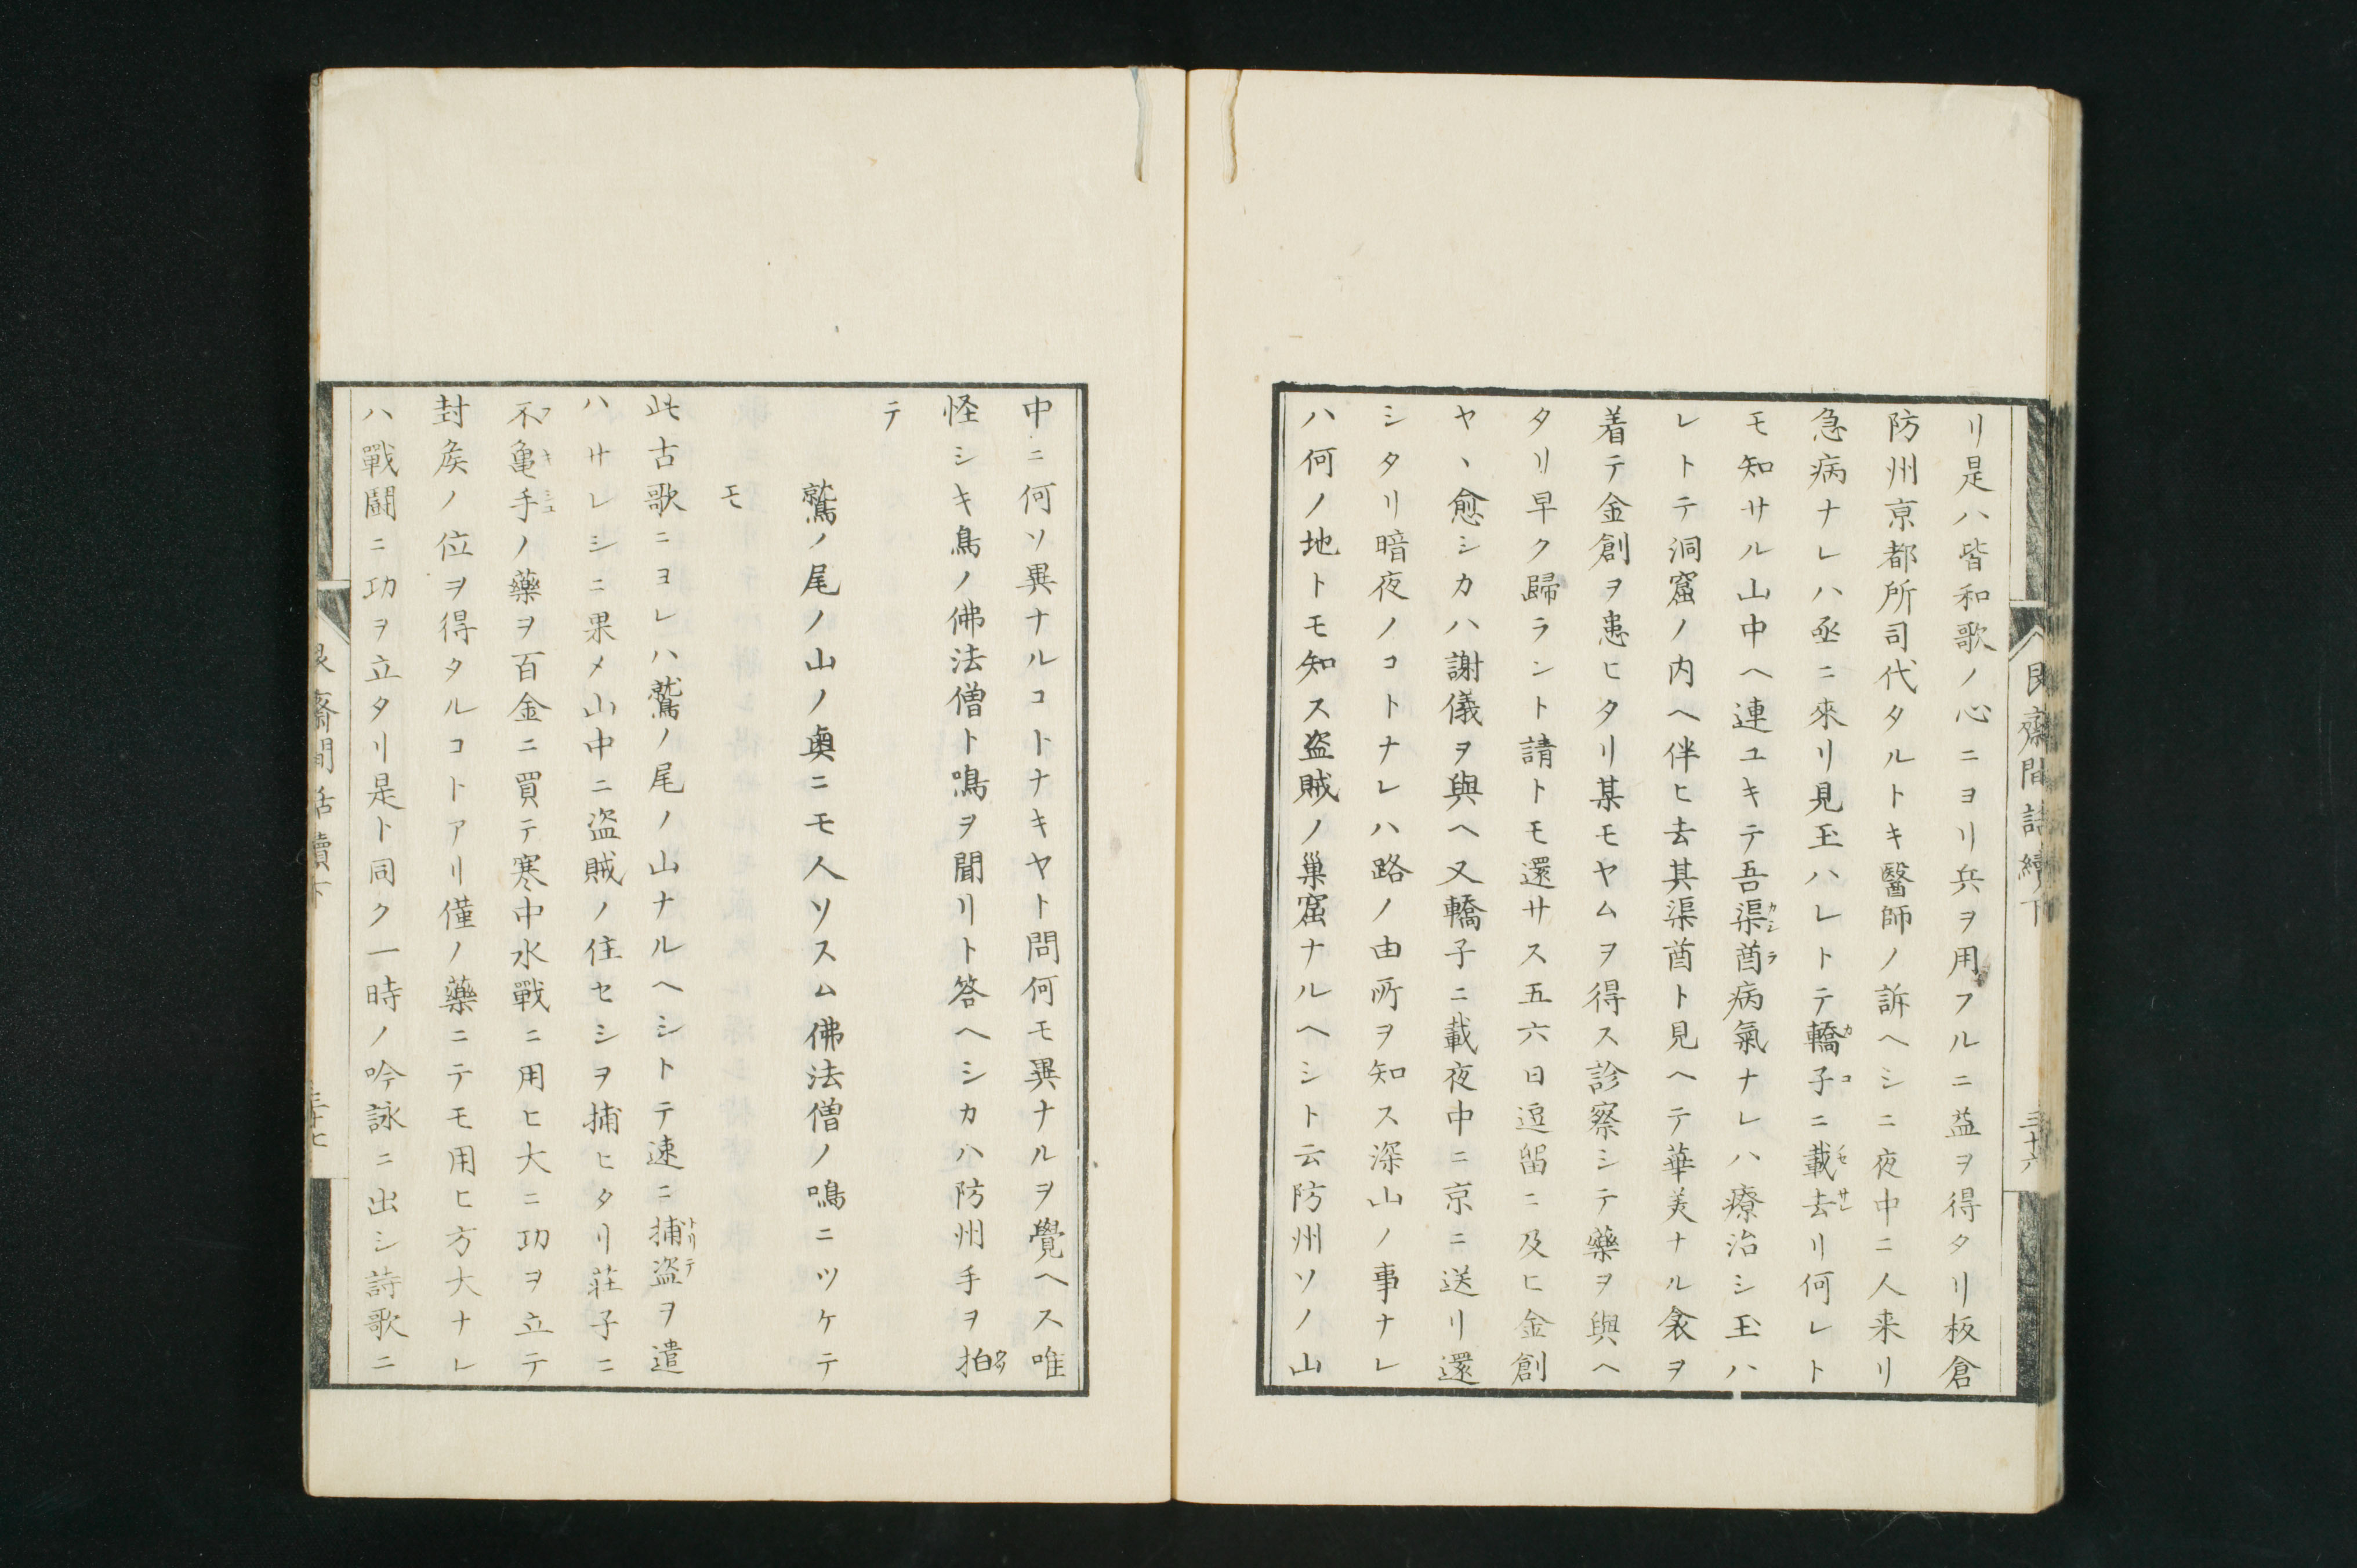 リ是ハ皆和歌ノ心ニヨリ兵ヲ用フルニ益ヲ得タリ板倉
防州京都所司代タルトキ醫師ノ訴ヘシニ夜中ニ人来リ
急病ナレハ亟ニ來リ見玉ハレトテ轎子ニ載去リ何レト
モ知サル山中ヘ連ユキテ吾渠酋病氣ナレハ療治シ玉ハ
レトテ洞窟ノ内ヘ伴ヒ去其渠酋ト見ヘテ華美ナル衾ヲ
着テ金創ヲ患ヒタリ某モヤムヲ得ス診察シテ藥ヲ與ヘ
タリ早ク歸ラント請トモ還サス五六日逗留ニ及ヒ金創
ヤヽ愈シカハ謝儀ヲ與ヘ又轎子ニ載夜中ニ京ニ送リ還
シタリ暗夜ノコトナレハ路ノ由所ヲ知ス深山ノ事ナレ
ハ何ノ地トモ知ス盗賊ノ巢窟ナルヘシト云防州ソノ山
艮齋間話續下
三十六
中ニ何ソ異ナルコトナキヤト問何モ異ナルヲ覺ヘス唯
怪シキ鳥ノ佛法僧ト鳴ヲ聞リト答ヘシカハ防州手ヲ拍
テ
鷲ノ尾ノ山ノ奥ニモ人ソスム佛法僧ノ鳴ニツケテ
モ
此古歌ニヨレハ鷲ノ尾ノ山ナルヘシトテ速ニ捕盗ヲ遣
ハサレシニ果メ山中ニ盗賊ノ住セシヲ捕ヒタリ荘子ニ
不亀手ノ藥ヲ百金ニ買テ寒中水戰ニ用ヒ大ニ功ヲ立テ
封矦ノ位ヲ得タルコトアリ僅ノ藥ニテモ用ヒ方大ナレ
ハ戰鬪ニ功ヲ立タリ是ト同ク一時ノ吟詠ニ出シ詩歌ニ
艮齋間話續下
三十七